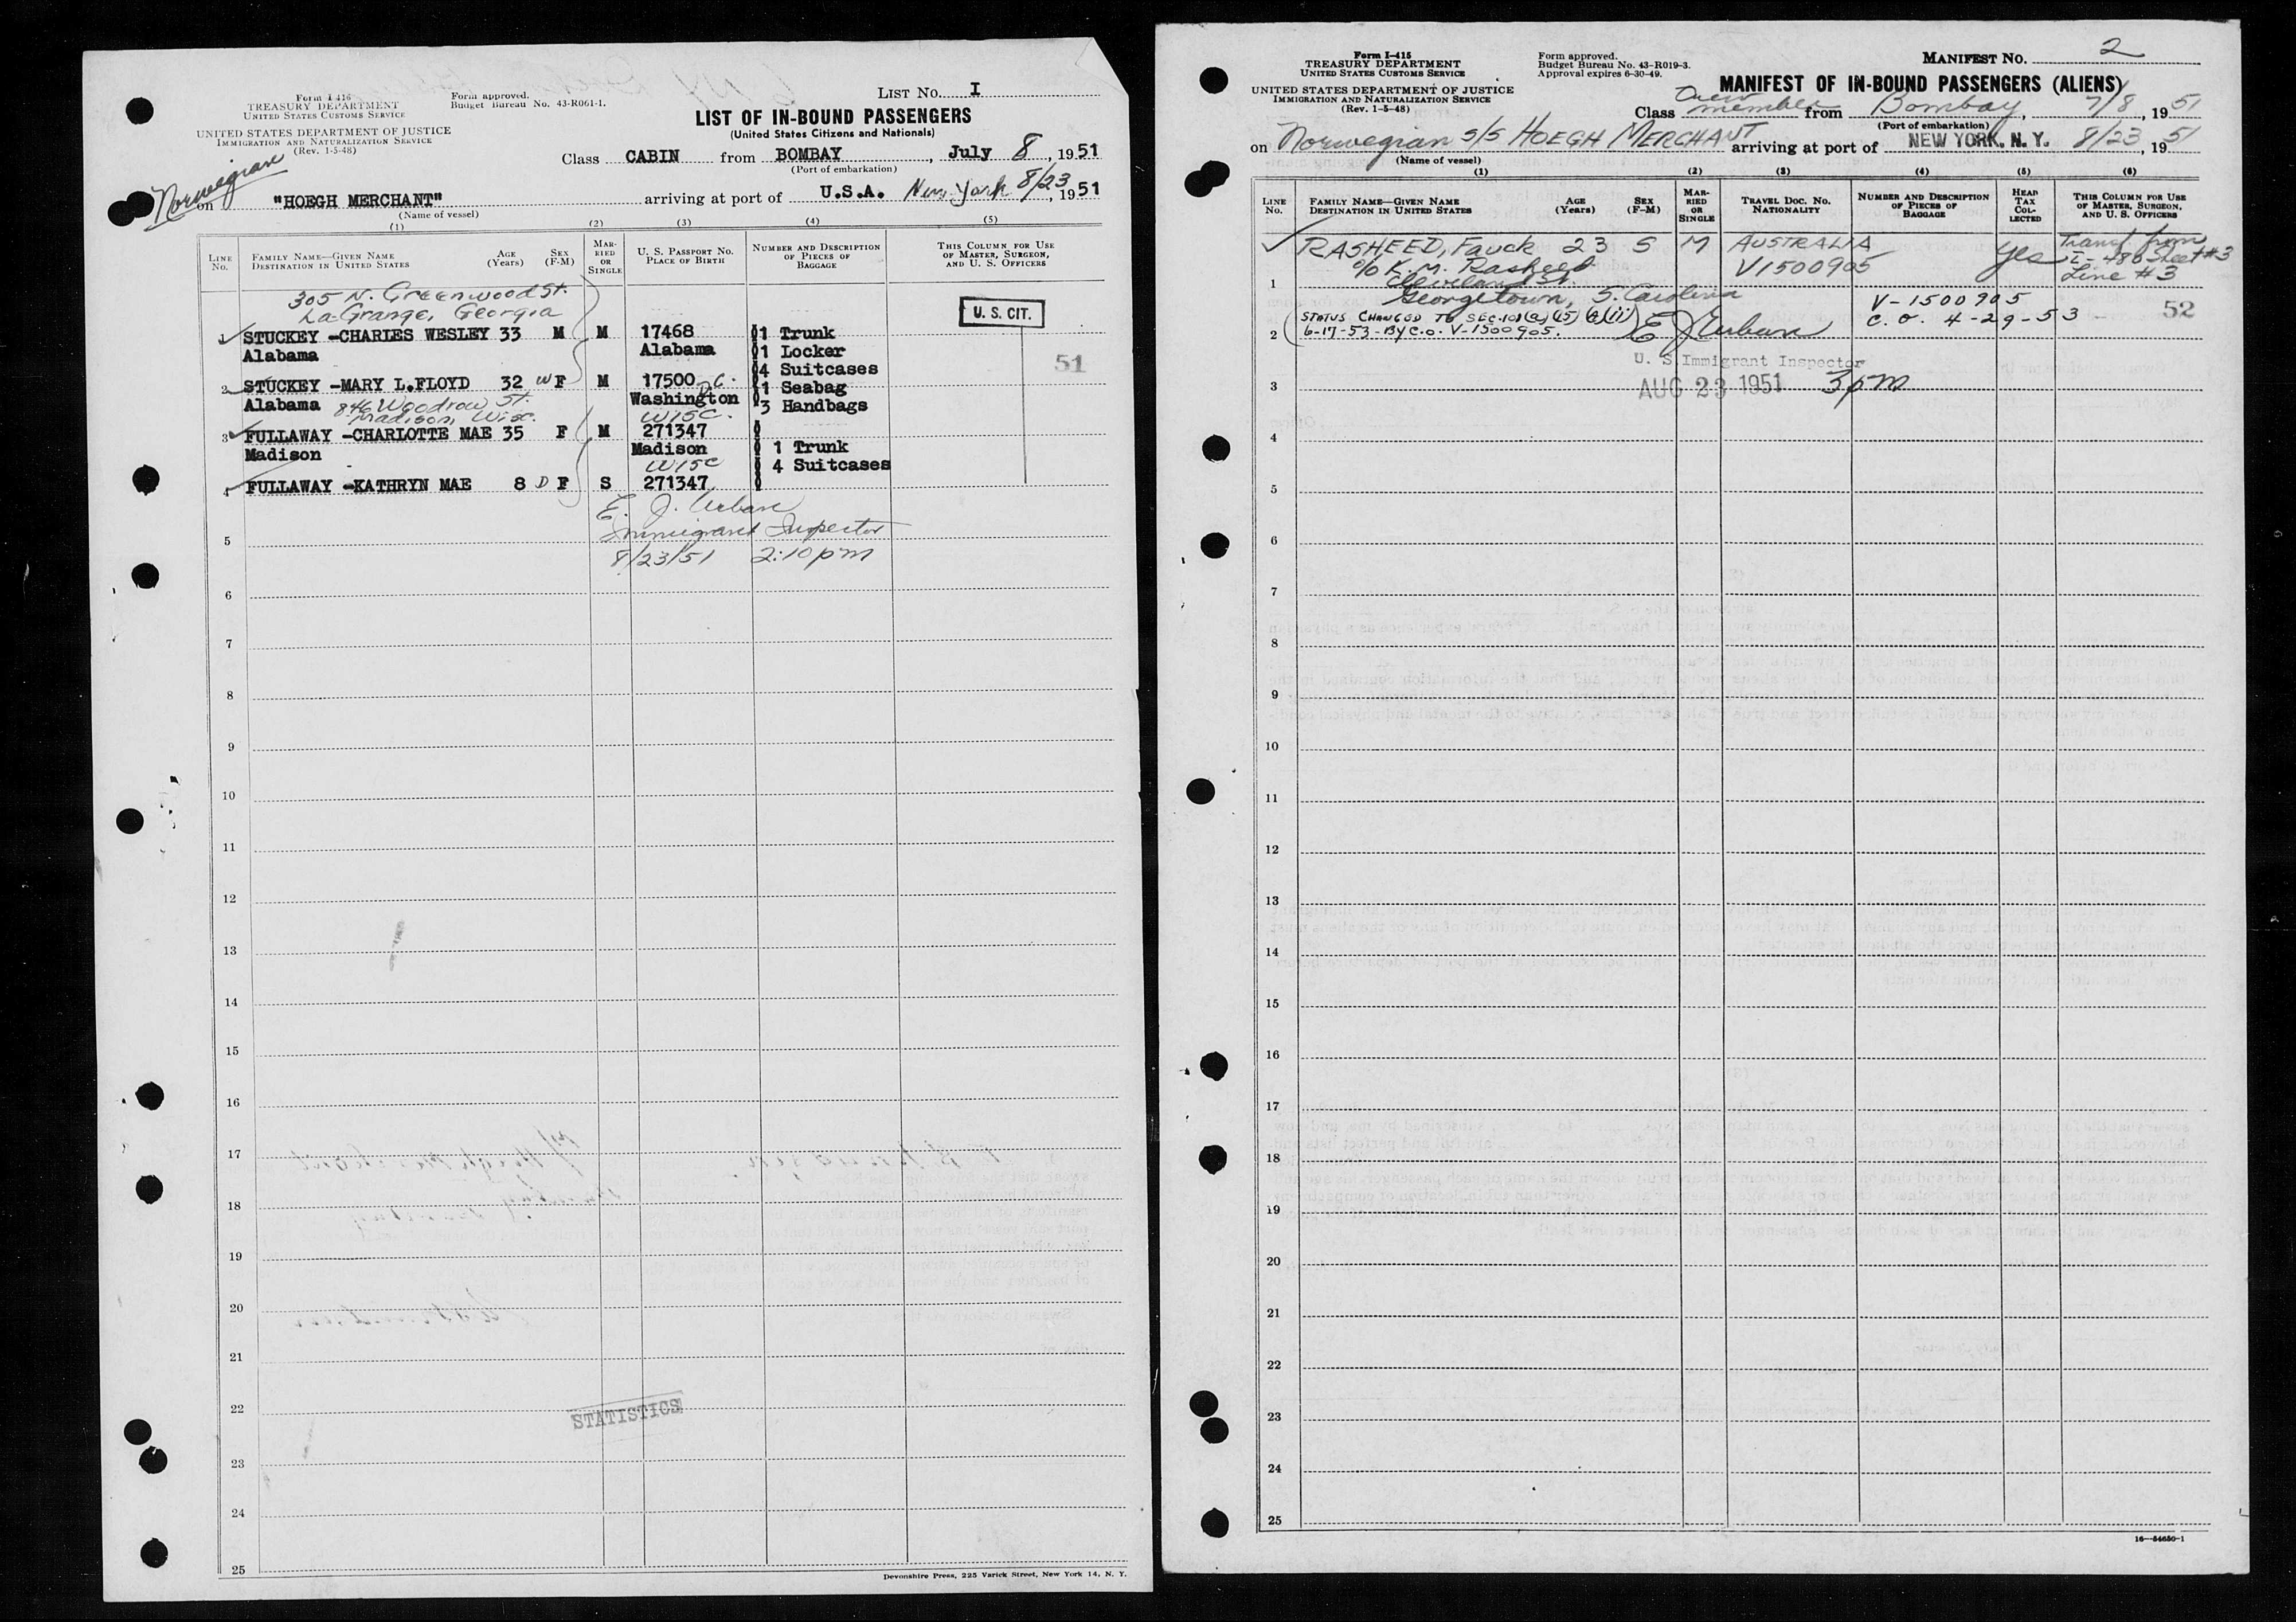 Form I-416
TREASURY DEPARTMENT
UNITED STATES CUSTOMS SERVICE
UNITED STATES DEPARTMENT OF JUSTICE
IMMIGRATION AND NATURALIZATION SERVICE
(Rev. 1-5-48)
Form approved.
Budget Bureau No. 43-R061-1.
LIST No. I
LIST OF IN-BOUND PASSENGERS
(United States Citizens and Nationals)
Class CABIN from BOMBAY, July 8, 1951
(Port of embarkation)
Norwegian
on "HOEGH MERCHANT" arriving at port of U.S.A. New York 8/23, 1951
(Name of vessel)
(1) (2) (3) (4) (5)
LINE No. FAMILY NAME—GIVEN NAME DESTINATION IN UNITED STATES AGE (Years) SEX (F-M) MARRIED OR SINGLE U. S. PASSPORT NO. PLACE OF BIRTH NUMBER AND DESCRIPTION OF PIECES OF BAGGAGE THIS COLUMN FOR USE OF MASTER, SURGEON, AND U. S. OFFICERS
305 N. Greenwood St.
La Grange, Georgia
U. S. CIT.
1 STUCKEY -CHARLES WESLEY 33 M M 17468 1 Trunk
Alabama Alabama 1 Locker
4 Suitcases 51
2 STUCKEY -MARY L.FLOYD 32 W F M 17500 D.C. 1 Seabag
Alabama Washington 3 Handbags
846 Woodrow St.
Madison, Wisc. Wisc.
3 FULLAWAY -CHARLOTTE MAE 35 F M 271347
Madison Madison 1 Trunk
Wisc 4 Suitcases
4 FULLAWAY -KATHRYN MAE 8 D F S 271347
E. J. Urban
Immigrant Inspector
8/23/51 2:10 pm
5
6
7
8
9
10
11
12
13
14
15
16
17
18
19
20
21
22
STATISTICS
23
24
25
Devonshire Press, 225 Varick Street, New York 14, N. Y.
Form I-415
TREASURY DEPARTMENT
UNITED STATES CUSTOMS SERVICE
UNITED STATES DEPARTMENT OF JUSTICE
IMMIGRATION AND NATURALIZATION SERVICE
(Rev. 1-5-48)
Form approved.
Budget Bureau No. 43-R019-3.
Approval expires 6-30-49.
MANIFEST No. 2
MANIFEST OF IN-BOUND PASSENGERS (ALIENS)
Class Crew member from Bombay, 7/8, 1951
(Port of embarkation)
on Norwegian S/S HOEGH MERCHANT arriving at port of NEW YORK, N. Y. 8/23, 1951
(Name of vessel)
(1) (2) (3) (4) (5) (6)
LINE No. FAMILY NAME—GIVEN NAME DESTINATION IN UNITED STATES AGE (Years) SEX (F-M) MARRIED OR SINGLE TRAVEL DOC. NO. NATIONALITY NUMBER AND DESCRIPTION OF PIECES OF BAGGAGE HEAD TAX COLLECTED THIS COLUMN FOR USE OF MASTER, SURGEON, AND U. S. OFFICERS
RASHEED, Fauck 23 S M AUSTRALIA yes Transf from
c/o K. M. Rasheed V1500905 I-486 Sheet #3
1 Cleveland St. Line #3
Georgetown, S. Carolina V-1500905
STATUS CHANGED TO SEC.101(a)(15)(a)(ii) C.O. 4-29-53 52
2 6-17-53-By C.O. V-1500905. E J Urban
U. S. Immigrant Inspector
3 AUG 23 1951 3 pm
4
5
6
7
8
9
10
11
12
13
14
15
16
17
18
19
20
21
22
23
24
25
16—54650-1